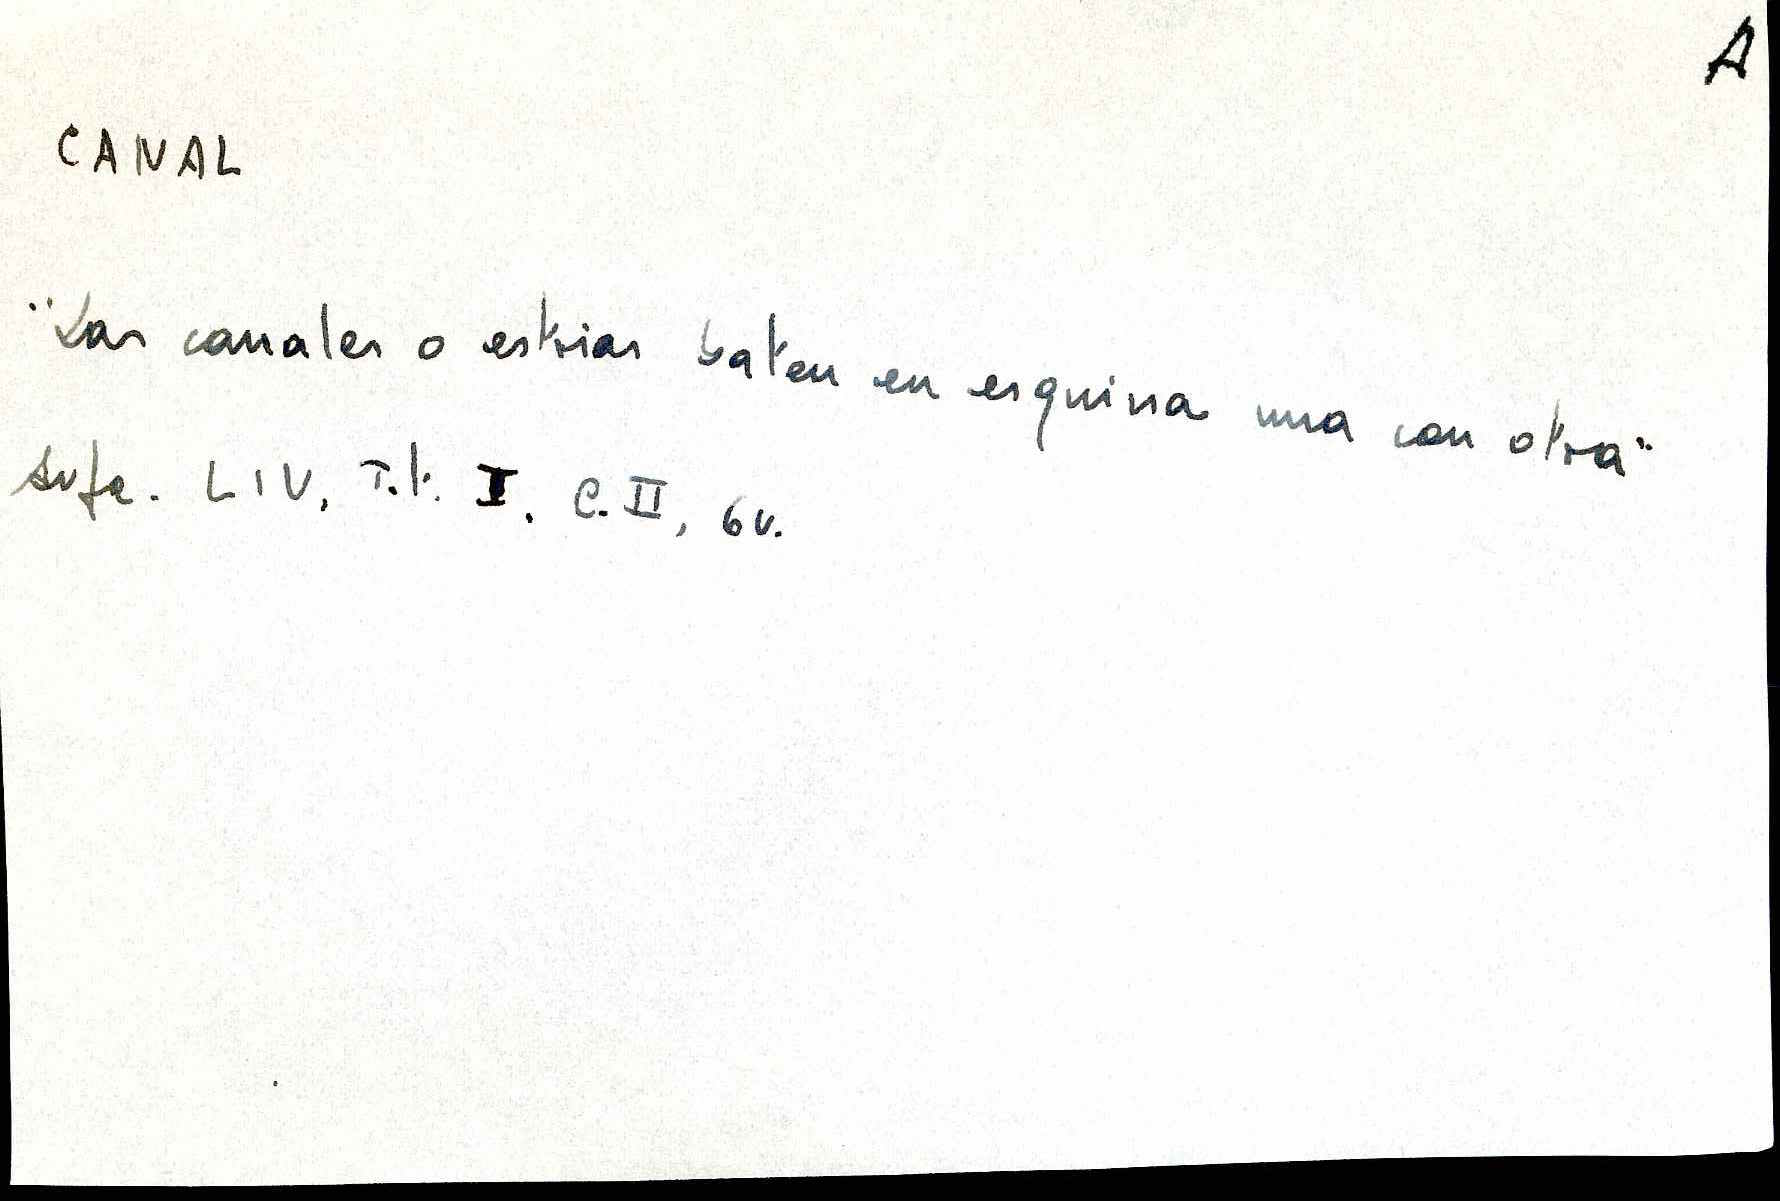 A
CANAL
"Las canales o estrias baten en esquina una con otra"
Arfe. LIV, Tit. I. C. II, 6v.